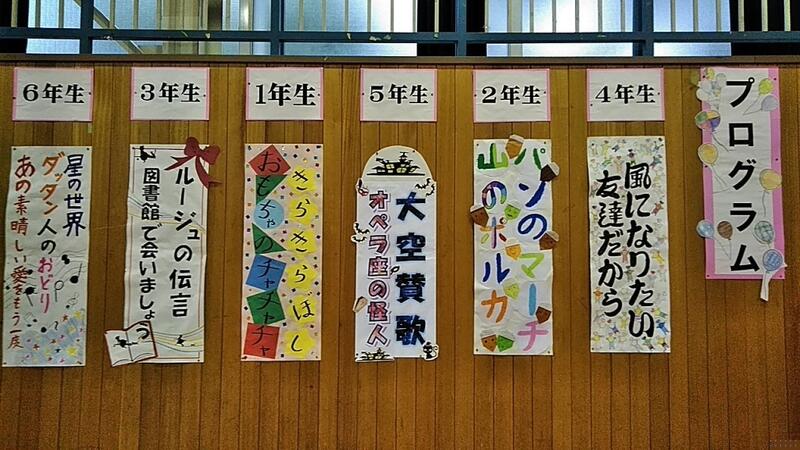 プログラム
4年生
風になりたい
友達だから
2年生
パンのマーチ
山のポルカ
5年生
大空賛歌
オペラ座の怪人
1年生
きらきらぼし
おもちゃのチャチャチャ
3年生
ルージュの伝言
図書館で会いましょう
6年生
星の世界
ダッタン人のおどり
あの素晴しい愛をもう一度